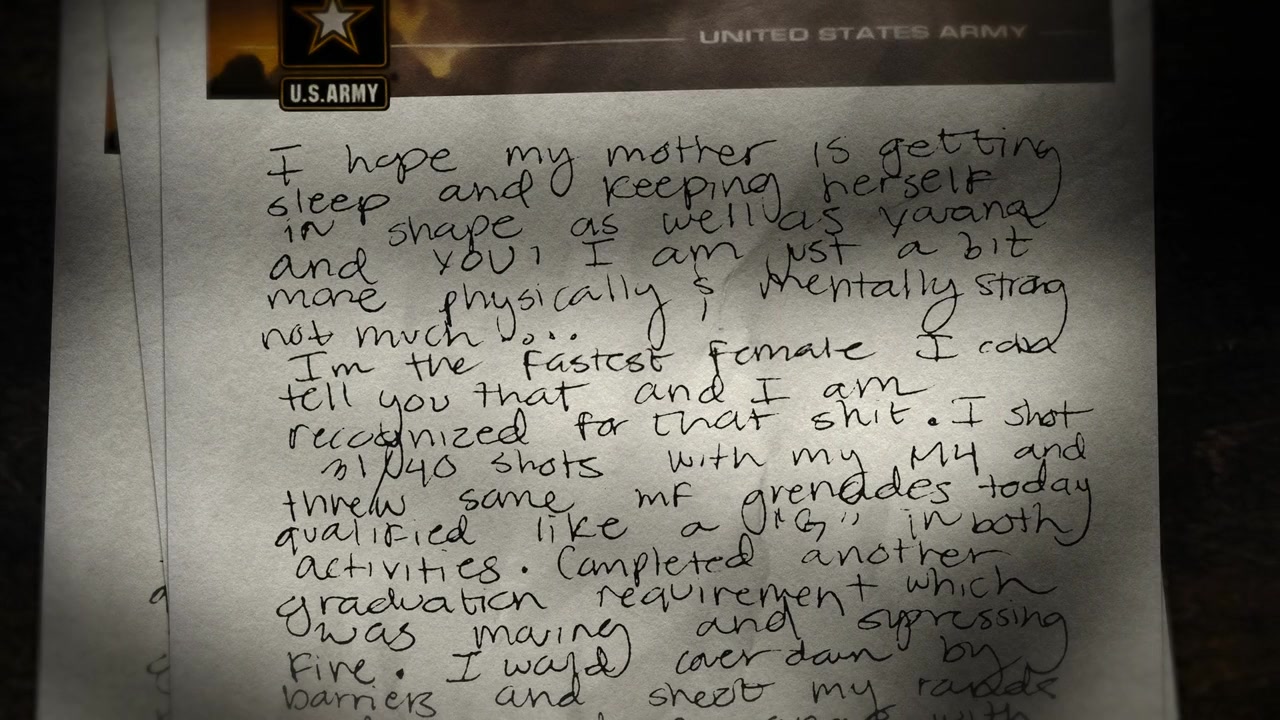 UNITED STATES ARMY
U.S.ARMY
I hope my mother is getting
sleep and keeping herself
in shape as well as
and you! I am just a bit
more physically & mentally strong
not much ...
I'm the fastest female I
tell you that and I am
recognized for that shit. I shot
31/40 shots with my M4 and
threw some MF grenades today
qualified like a "G" in both
activities. Completed another
graduation requirement which
was moving and supressing
fire. I would cover down by
barriers and shoot my rounds
with